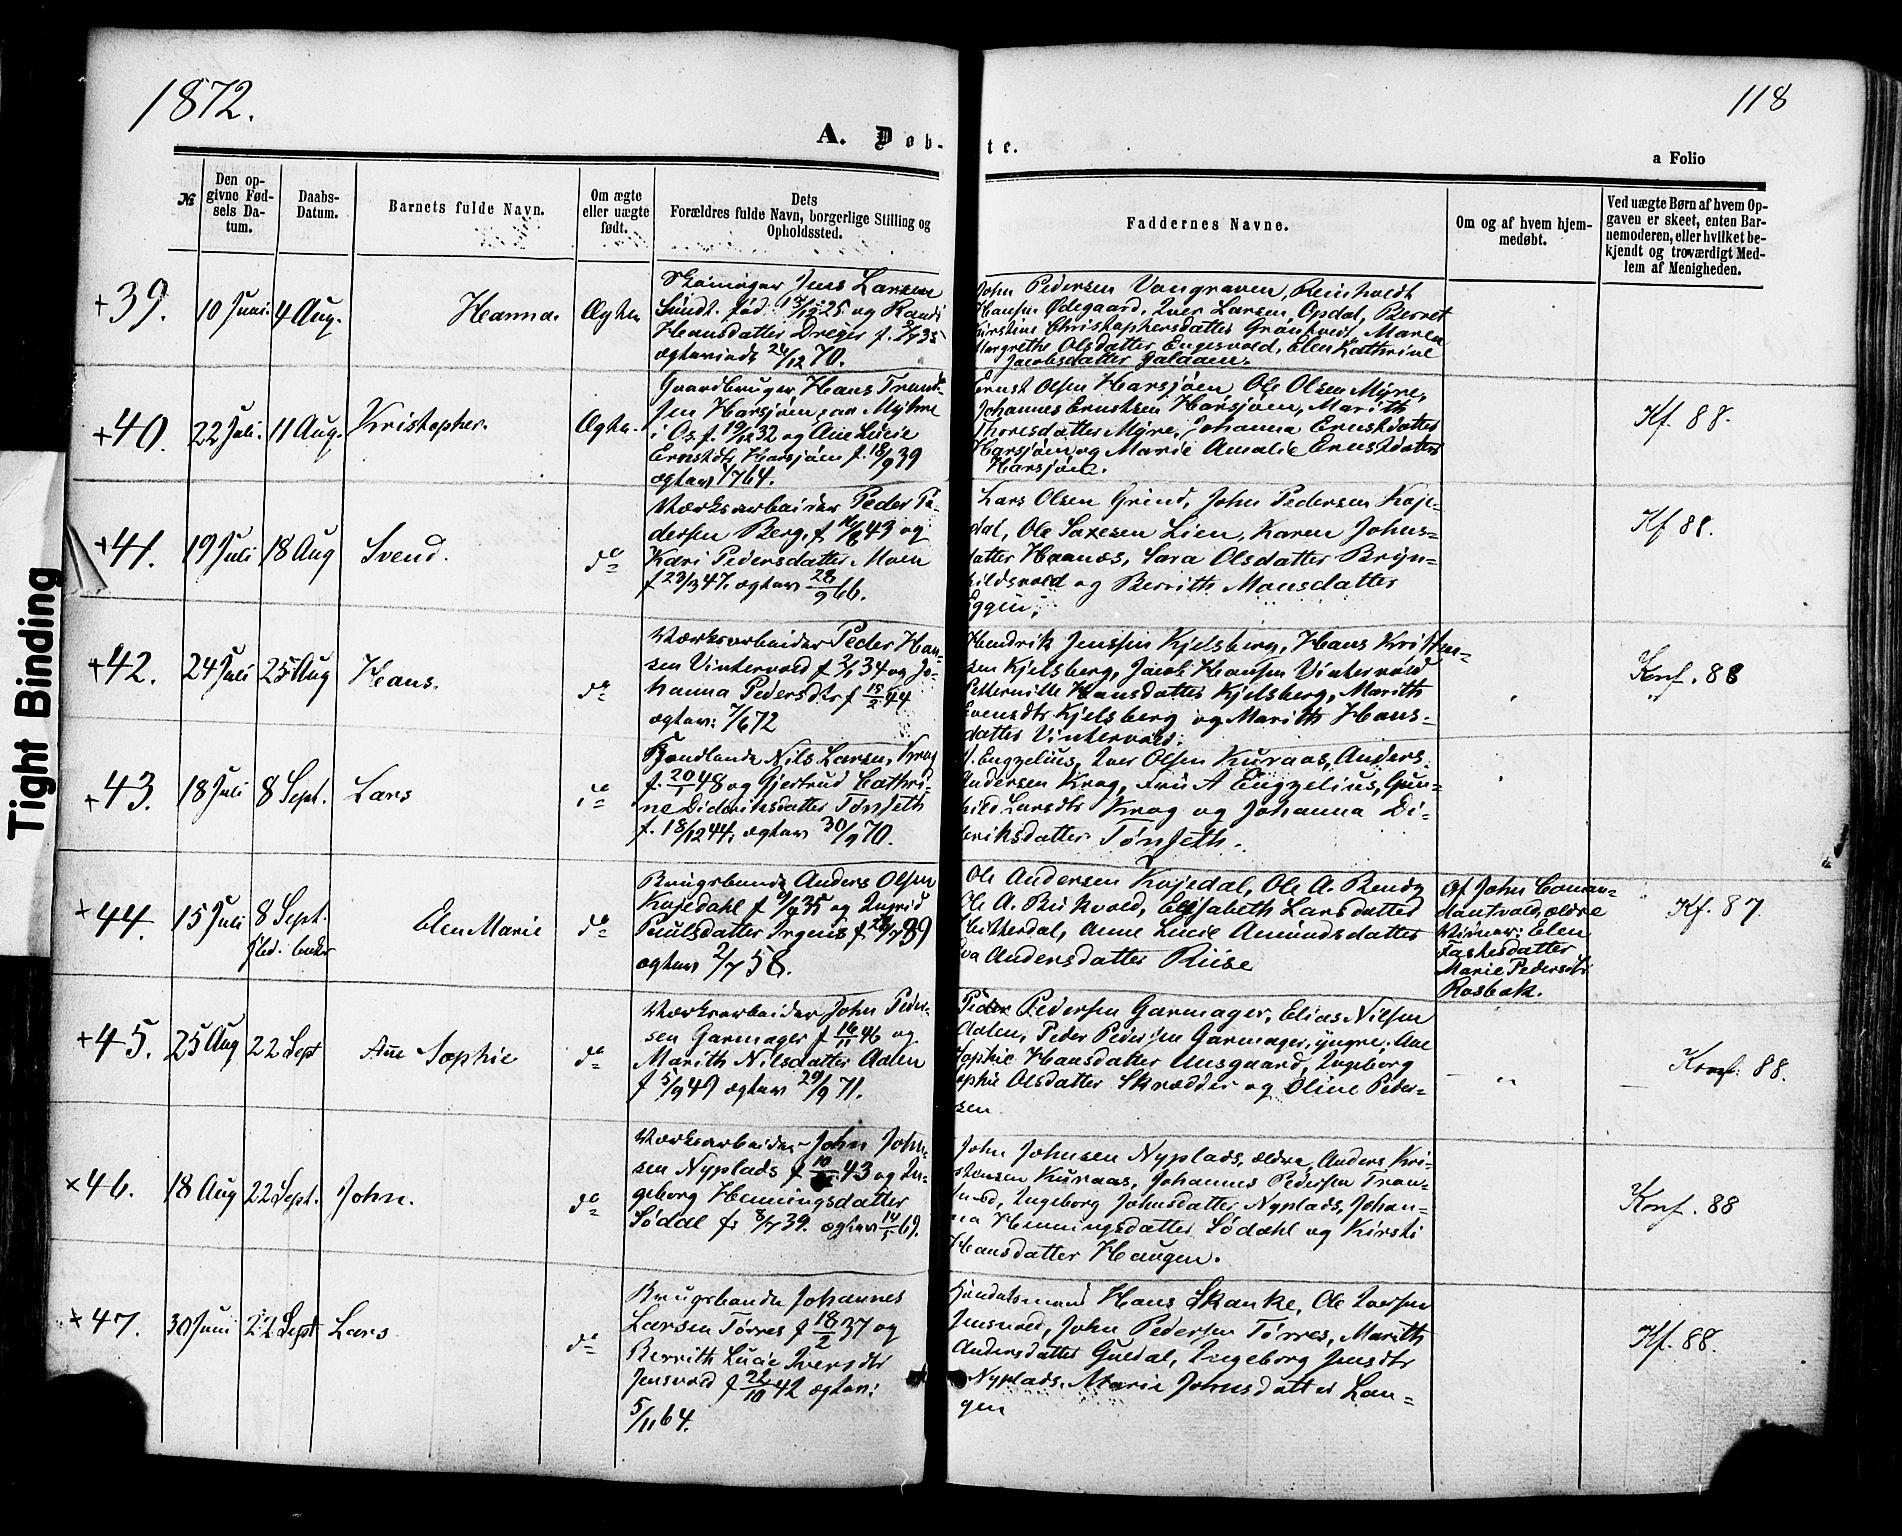 1872.
118
A. Døb-
te.
a Folio
№
Den op-
givne Fød-
sels Da-
tum.
Daabs-
Datum.
Barnets fulde Navn.
Om ægte
eller uægte
født.
Dets
Forældres fulde Navn, borgerlige Stilling og
Opholdssted.
Faddernes Navne.
Om og af hvem hjem-
medøbt.
Ved uægte Børn af hvem Op-
gaven er skeet, enten Bar-
nemoderen, eller hvilket be-
kjendt og troværdigt Med-
lem af Menigheden.
+39. 10 Juni. 4 Aug. Hanna. Ægte
Jens Larsen
Sundt. fød 13/12 25 og Randi
Hansdatter Dreyer f. 35
ægteviede 26/12 70.
John Pedersen Vongraven, Reinholdt
Hansen Ødegaard, Iver Larsen, Opdal, Berret
Kirstine Christophersdatter Grøntvedt, Maren
Margrethe Olsdatter Engesvold, Elen Kathrine
Jacobsdatter Galaaen.
+40. 22 Juli. 11 Aug. Kristopher. Ægte.
Gaardbruger Hans Trond-
sen Harsjøen, Myhre
i Os f. 19/12 32 og Ane Lucie
Ernstdtr Harsjøen f. 18/9 39
ægtev. 1764.
Ernst Olsen Harsjøen, Ole Olsen Myre,
Johannes Ernstsen Harsjøen, Marith
Thoresdatter Myre, Johanna Ernstdatter
Harsjøen og Marie Amalie Ernstdatter
Harsjøen.
Kf. 88.
+41. 19 Juli 18 Aug Svend. do
Værksarbeider Peder Pe-
dersen Berg, f 10/6 43 og
Kari Pedersdatter Moen
f 23/3 47. ægtev 28/9 66.
Lars Olsen Grind, John Pedersen Koje-
dal, Ole Saxesen Lien, Karen Johns-
datter Haanæs, Sara Olsdatter Bryn-
hildsvold og Berrith Monsdatter
Eggen,
Kf 88.
+42. 24 Juli 25 Aug Hans. do
Værksarbeider Peder Han-
sen Vintervold f 2/1 34 og Jo-
hanna Pedersdtr f 15/2 44
ægtev: 7/6 72
Hendrik Jenssen Kjelsberg, Hans Kristen-
sen Kjelsberg, Jacob Hansen Vintervold
Petternille Hansdatter Kjelsberg, Marith
Evensdtr Kjelsberg og Marith Hans-
datter Vintervold.
Konf. 88
+43. 18 Juli 8 Sept. Lars do
Nils Larsen Krog
f. 20/1 48 og Gjertrud Cathri-
ne Didriksdatter Tønseth
f. 18/12 44. ægtev 30/9 70.
Engzelius, Iver Olsen Kuraas, Anders
Andersen Krog, Fru A Engzelius, Gun-
hild Larsdtr Krog og Johanna Di-
driksdatter Tønseth.
+44. 15 Juli 8 Sept. Elen Marie do
Brugsbonde Anders Olsen
Kojedahl f 35 og Ingrid
Paulsdatter Irgens f 39
ægtev 2/7 58.
Ole Andersen Kojedal, Ole A. Bendz
Ole A. Birkvold, Elisabeth Larsdatter
Hitterdal, Anne Lucie Amundsdatter
Eva Andersdatter Riise
Af John Coman-
dantvold, ældre
Vidner: Elen
Taskesdatter
Marie Pedersdtr
Rosbak.
Kf. 87.
+45. 25 Aug 22 Sept Ane Sophie do
Værksarbeider John Peder-
sen Garmager f 16/11 46 og
Marith Nilsdatter Aalen
f 5/9 49 ægtev 29/9 71.
Peder Pedersen Garmager, Elias Nilsen
Aalen, Peder Pedersen Garmager, yngre, Ane
Sophie Hansdatter Unsgaard, Ingeborg
Sophie Olsdatter Skrædder og Oline Peder-
sen
Konf. 88.
×46. 18 Aug 22 Sept. John. do
Værksarbeider John John-
sen Nyplads f 43 og In-
geborg Henningsdatter
Sødal f: 8/7 39. ægtev 69.
John Johnsen Nyplads, ældre, Anders Kri-
stensen Kuraas, Johannes Pedersen Tron-
Ingeborg Johnsdatter Nyplads, Johan-
na Henningsdatter Sødahl og Kirsti
Hansdatter Haugen.
Konf. 88
×47. 30 Juni 22 Sept Lars do
Brugsbonde Johannes
Larsen Tørres f 18/2 37 og
Berrith Lucie Iversdtr
Jensvold f 22/10 42 ægtev:
5/11 64.
Hans Skanke, Ole Iversen
Jensvold, John Pedersen Tørres, Marith
Andersdatter Guldal, Ingeborg Jensdtr
Nyplads, Marie Johnsdatter Lan-
gen
Kf. 88.
Tight Binding